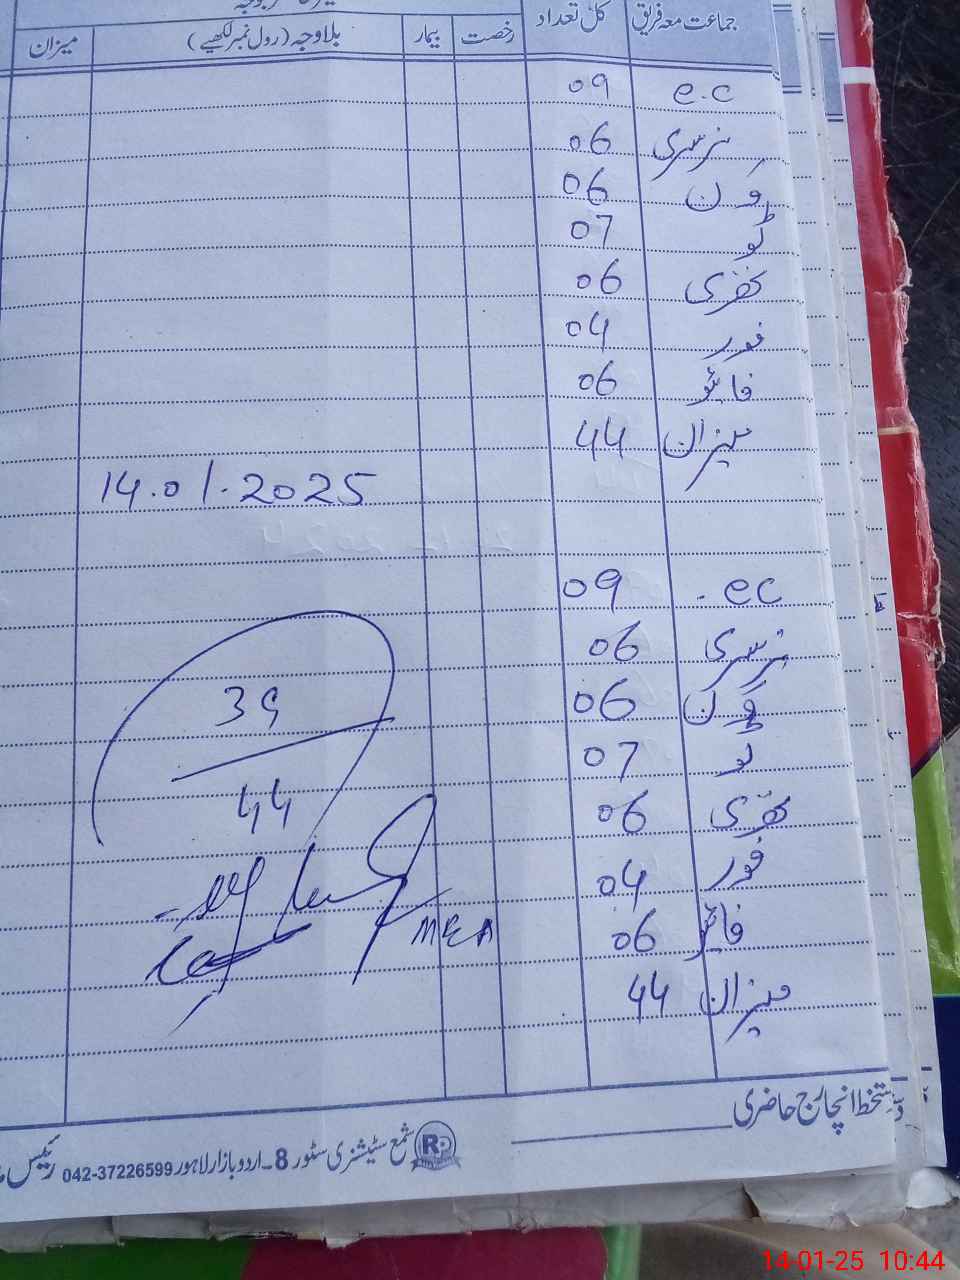 جماعت معہ فریق کل تعداد رخصت بیمار بلاوجہ (رول نمبر لکھیے) میزان
e.c 09
نرسری 06
ون 06
ٹو 07
تھری 06
فور 04
فائیو 06
میزان 44
14.01.2025
ec 09
نرسری 06
ون 06
ٹو 07
تھری 06
فور 04
فائیو 06
میزان 44
39
44
MEA
دستخط انچارج حاضری
شمع سٹیشنری سٹور 8۔اردو بازار لاہور 042-37226599
14-01-25 10:44